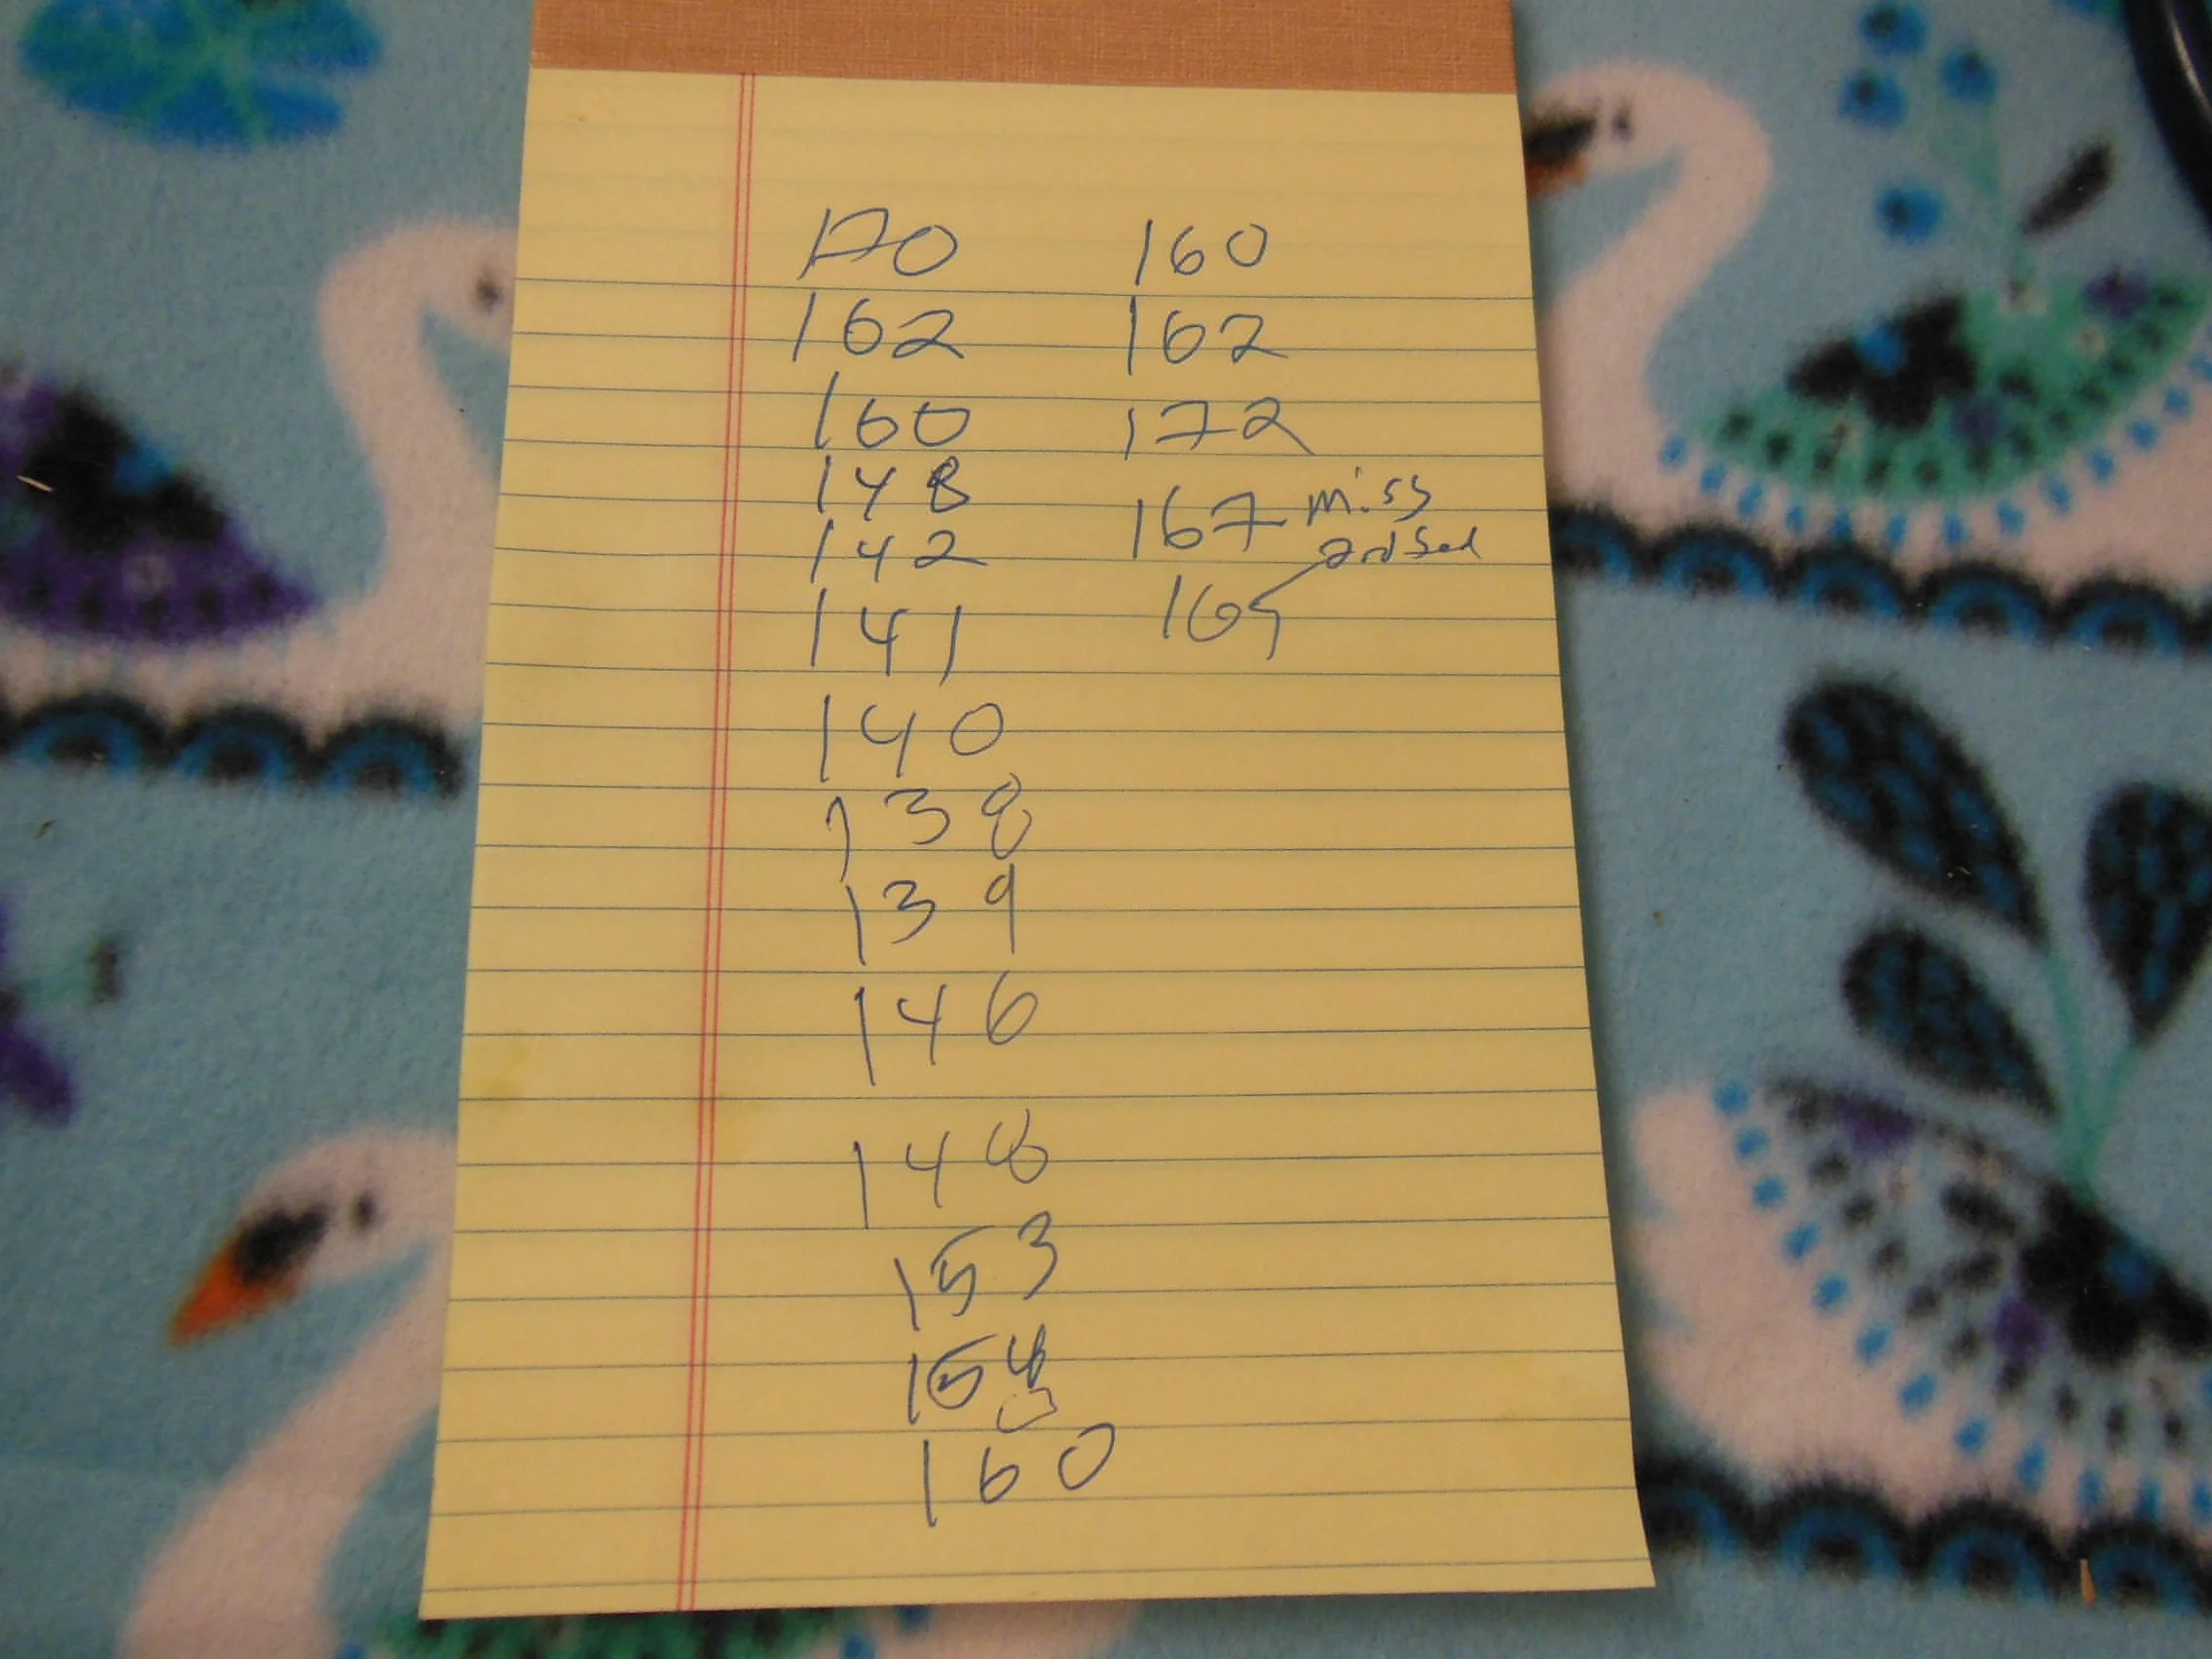 170
162
160
148
142
141
140
138
139
146
148
153
154
160
160
162
172
167 miss
169